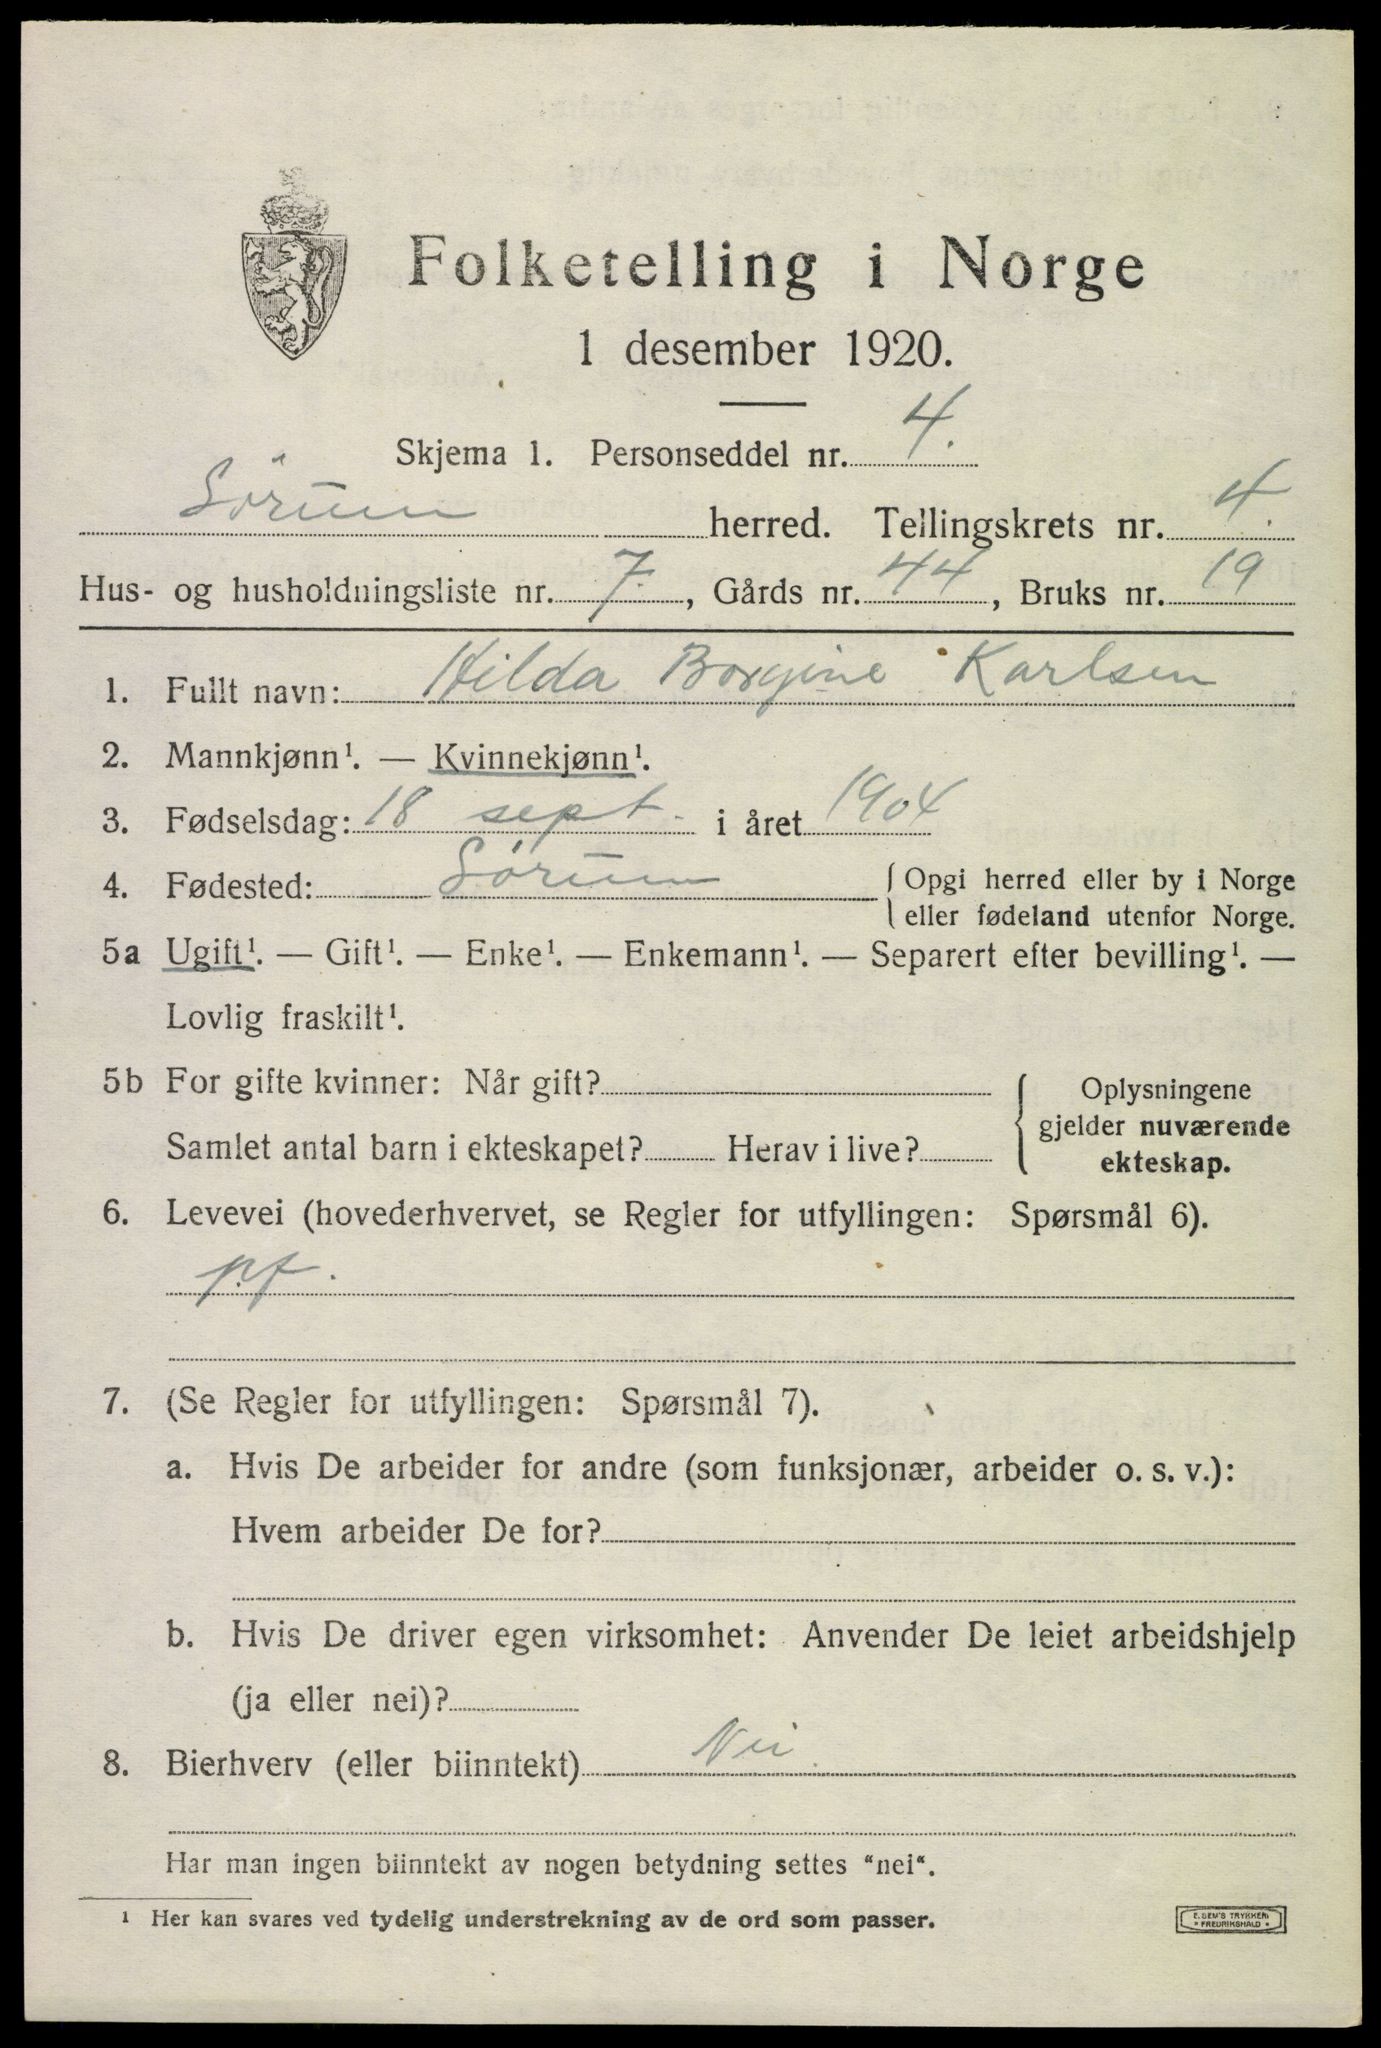 Folketelling i Norge
1 desember 1920.
Skjema 1. Personseddel nr. 4.
Sörum herred. Tellingskrets nr. 4.
Hus- og husholdningsliste nr. 7., Gårds nr. 44, Bruks nr. 19
1. Fullt navn: Hilda Borgine Karlsen
2. Mannkjønn¹. — Kvinnekjønn¹.
3. Fødselsdag: 18 sept. i året 1904
4. Fødested: Sörum { Opgi herred eller by i Norge
eller fødeland utenfor Norge.
5a Ugift¹. — Gift¹. — Enke¹. — Enkemann¹. — Separert efter bevilling¹. —
Lovlig fraskilt¹.
5b For gifte kvinner: Når gift? { Oplysningene
gjelder nuværende
Samlet antal barn i ekteskapet? Herav i live?
ekteskap.
6. Levevei (hovederhvervet, se Regler for utfyllingen: Spørsmål 6).
pf.
7. (Se Regler for utfyllingen: Spørsmål 7).
a. Hvis De arbeider for andre (som funksjonær, arbeider o. s. v.):
Hvem arbeider De for?
b. Hvis De driver egen virksomhet: Anvender De leiet arbeidshjelp
(ja eller nei)?
8. Bierhverv (eller biinntekt) Nei.
Har man ingen biinntekt av nogen betydning settes "nei".
¹ Her kan svares ved tydelig understrekning av de ord som passer.
E. SEM'S TRYKKERI
• FREDRIKSHALD •